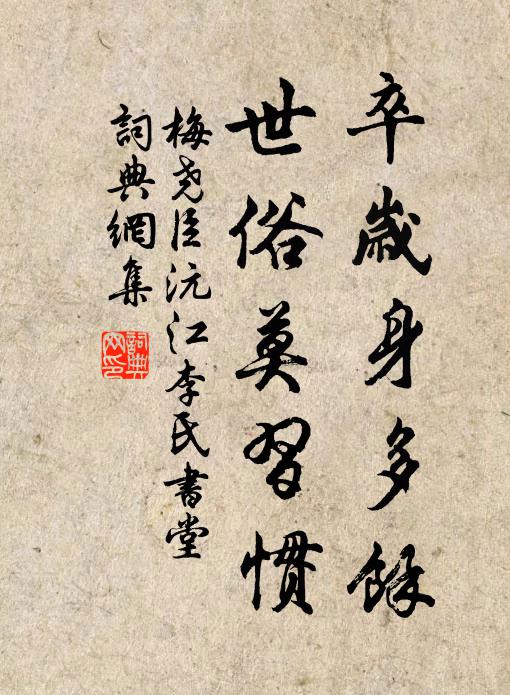 卒歲身多餘
世俗莫習慣
梅堯臣沅江李氏書堂
詞典網集
詞典網印